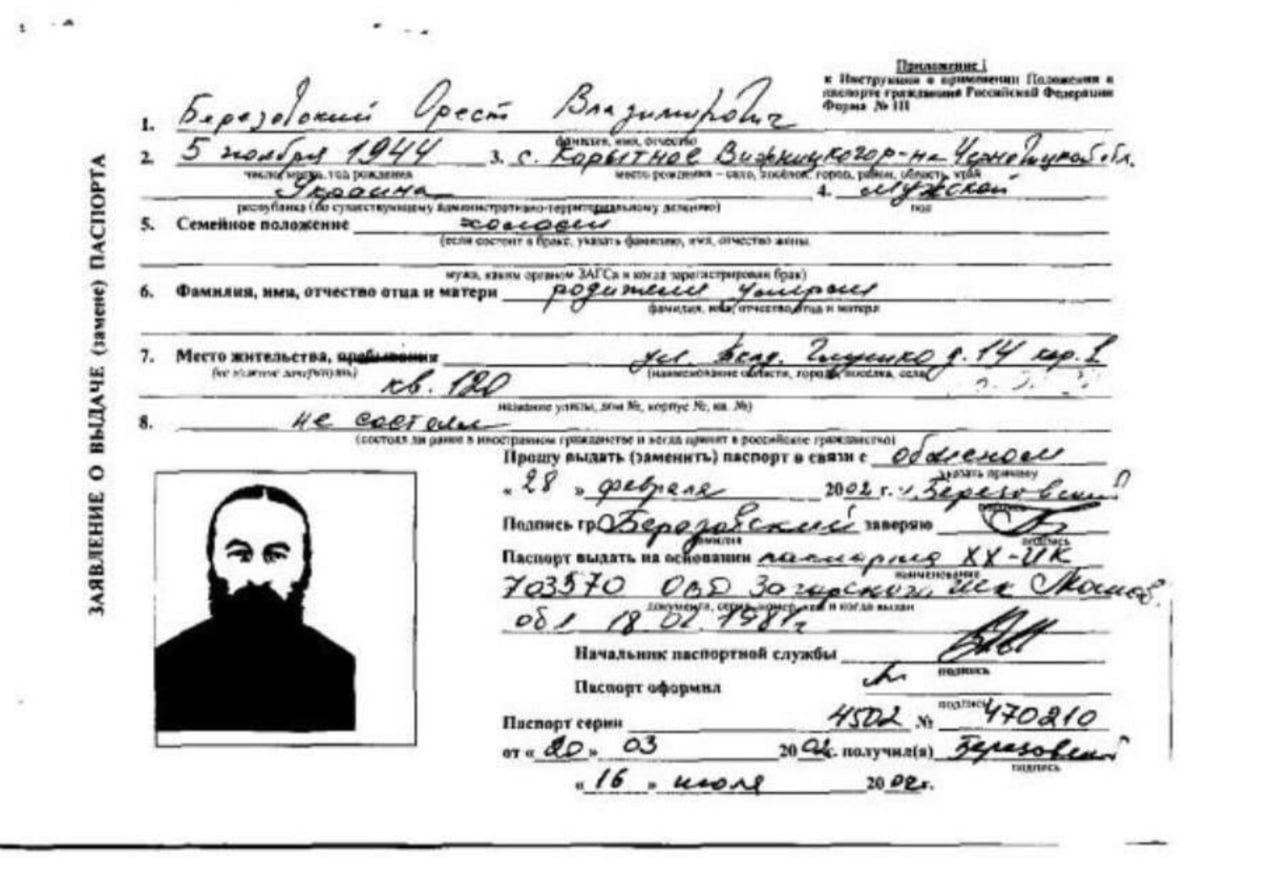 Приложение 1
к Инструкции о применении Положения о
паспорте гражданина Российской Федерации
Форма № 1П
ЗАЯВЛЕНИЕ О ВЫДАЧЕ (замене) ПАСПОРТА
1. Березовский Орест Владимирович
фамилия, имя, отчество
2. 5 ноября 1944 3. с. Корытное Вижницкого р-на Черновицкой обл.
число, месяц, год рождения место рождения – село, посёлок, город, район, область, край
Украина 4. мужской
республика (по существующему административно-территориальному делению) пол
5. Семейное положение холост
(если состоит в браке, указать фамилию, имя, отчество жены,
мужа, каким органом ЗАГСа и когда зарегистрирован брак)
6. Фамилия, имя, отчество отца и матери родители умерли
фамилия, имя, отчество отца и матери
7. Место жительства, пребывания ул. Акад. Глушко д. 14 кор. 1
(не нужное зачеркнуть) (наименование области, города, поселка, села
кв. 120
название улицы, дом №, корпус №, кв. №)
8. не состоял
(состоял ли ранее в иностранном гражданстве и когда принят в российское гражданство)
Прошу выдать (заменить) паспорт в связи с обменом
указать причину
« 28 » февраля 2002 г. Березовский
подпись
Подпись гр. Березовский заверяю
фамилия подпись
Паспорт выдать на основании паспорта XX-ИК
наименование
703570 ОВД Загорского Москов.
документа, серия, номер, кем и когда выдан
обл 18 02 1981г
Начальник паспортной службы
подпись
Паспорт оформил
подпись
Паспорт серии 4502 № 470210
от « 20 » 03 2002г. получил(а) Березовский
подпись
« 16 » июля 2002г.